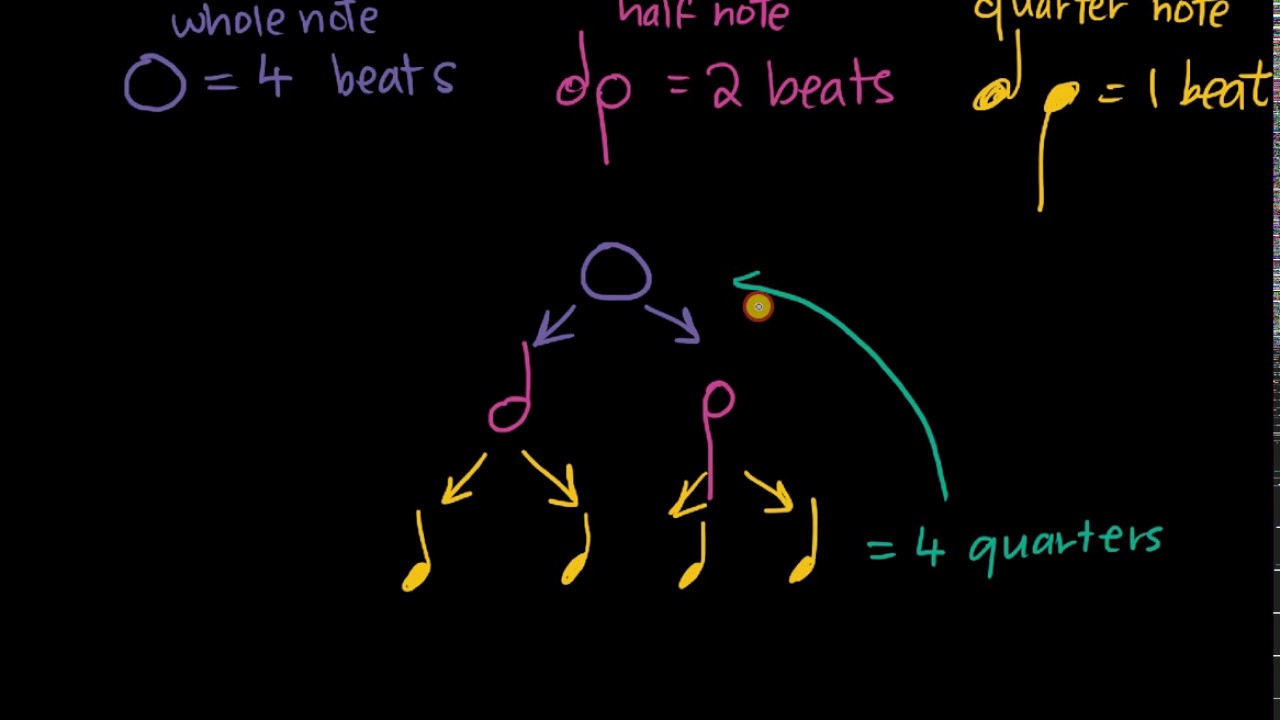 whole note
half note
quarter note
= 4 beats
= 2 beats
= 1 beat
= 4 quarters